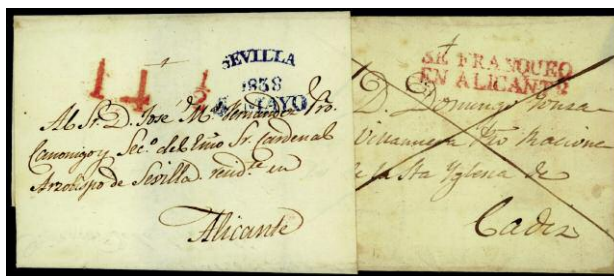 SEVILLA
1838
MAYO
1 4 1/2
Al Sr. D. José M. Fernandez Pro.
Canonigo y Sec.º del Emo Sr. Cardenal
Arzobispo de Sevilla resid.te en
Alicante
SE FRANQUEO
EN ALICANTE
D. Domingo
Villanueva Pro Racionero
de la Sta Yglesia de
Cadiz